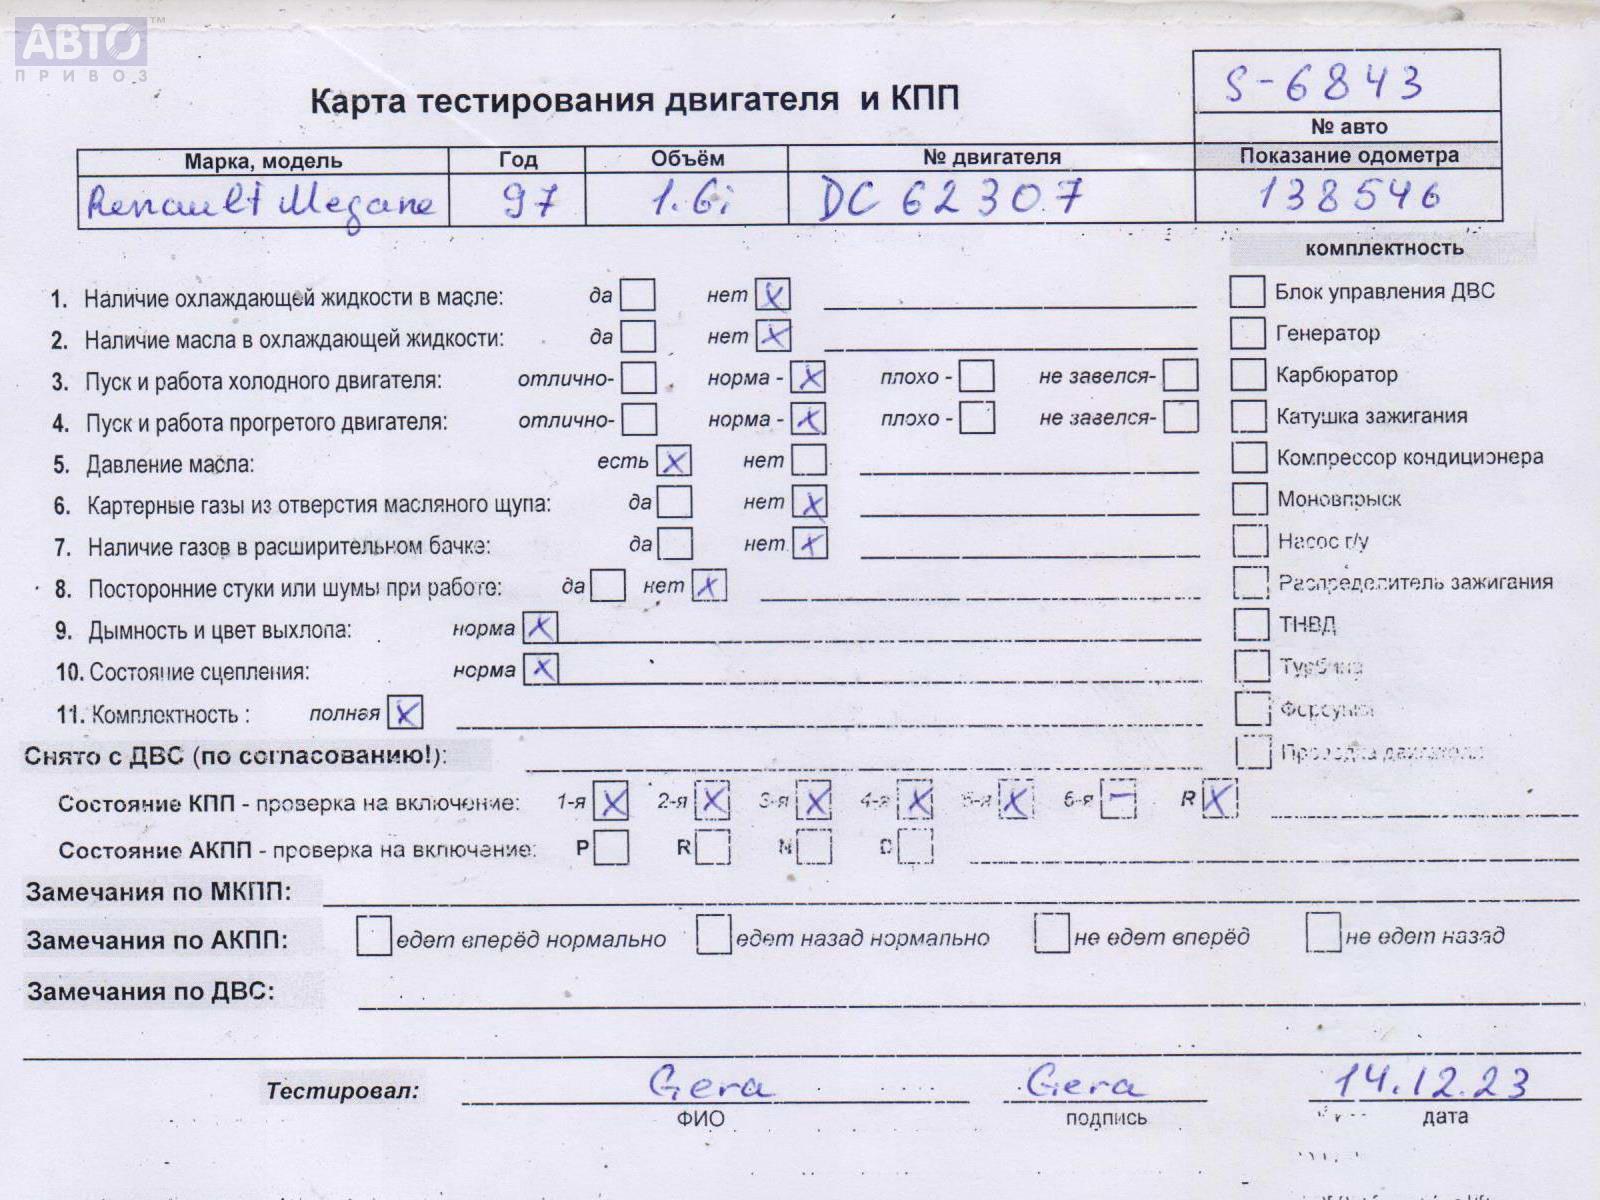 АВТО™
ПРИВОЗ
Карта тестирования двигателя и КПП
S-6843
№ авто
Марка, модель Год Объём № двигателя Показание одометра
Renault Megane 97 1.6i DC 62307 138546
комплектность
1. Наличие охлаждающей жидкости в масле: да нет X Блок управления ДВС
2. Наличие масла в охлаждающей жидкости: да нет X Генератор
3. Пуск и работа холодного двигателя: отлично- норма - X плохо - не завелся- Карбюратор
4. Пуск и работа прогретого двигателя: отлично- норма - X плохо - не завелся- Катушка зажигания
5. Давление масла: есть X нет Компрессор кондиционера
6. Картерные газы из отверстия масляного щупа: да нет X Моновпрыск
7. Наличие газов в расширительном бачке: да нет X Насос г/у
8. Посторонние стуки или шумы при работе: да нет X Распределитель зажигания
9. Дымность и цвет выхлопа: норма X ТНВД
10. Состояние сцепления: норма X Турбина
11. Комплектность : полная X Форсунки
Снято с ДВС (по согласованию!): Проводка двигателя
Состояние КПП - проверка на включение: 1-я X 2-я X 3-я X 4-я X 5-я X 6-я – R X
Состояние АКПП - проверка на включение: P R N D
Замечания по МКПП:
Замечания по АКПП: едет вперёд нормально едет назад нормально не едет вперёд не едет назад
Замечания по ДВС:
Тестировал: Gera Gera 14.12.23
ФИО подпись дата